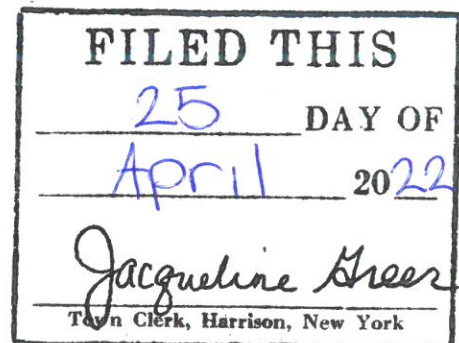 FILED THIS
25 DAY OF
April 2022
Jacqueline Greer
Town Clerk, Harrison, New York